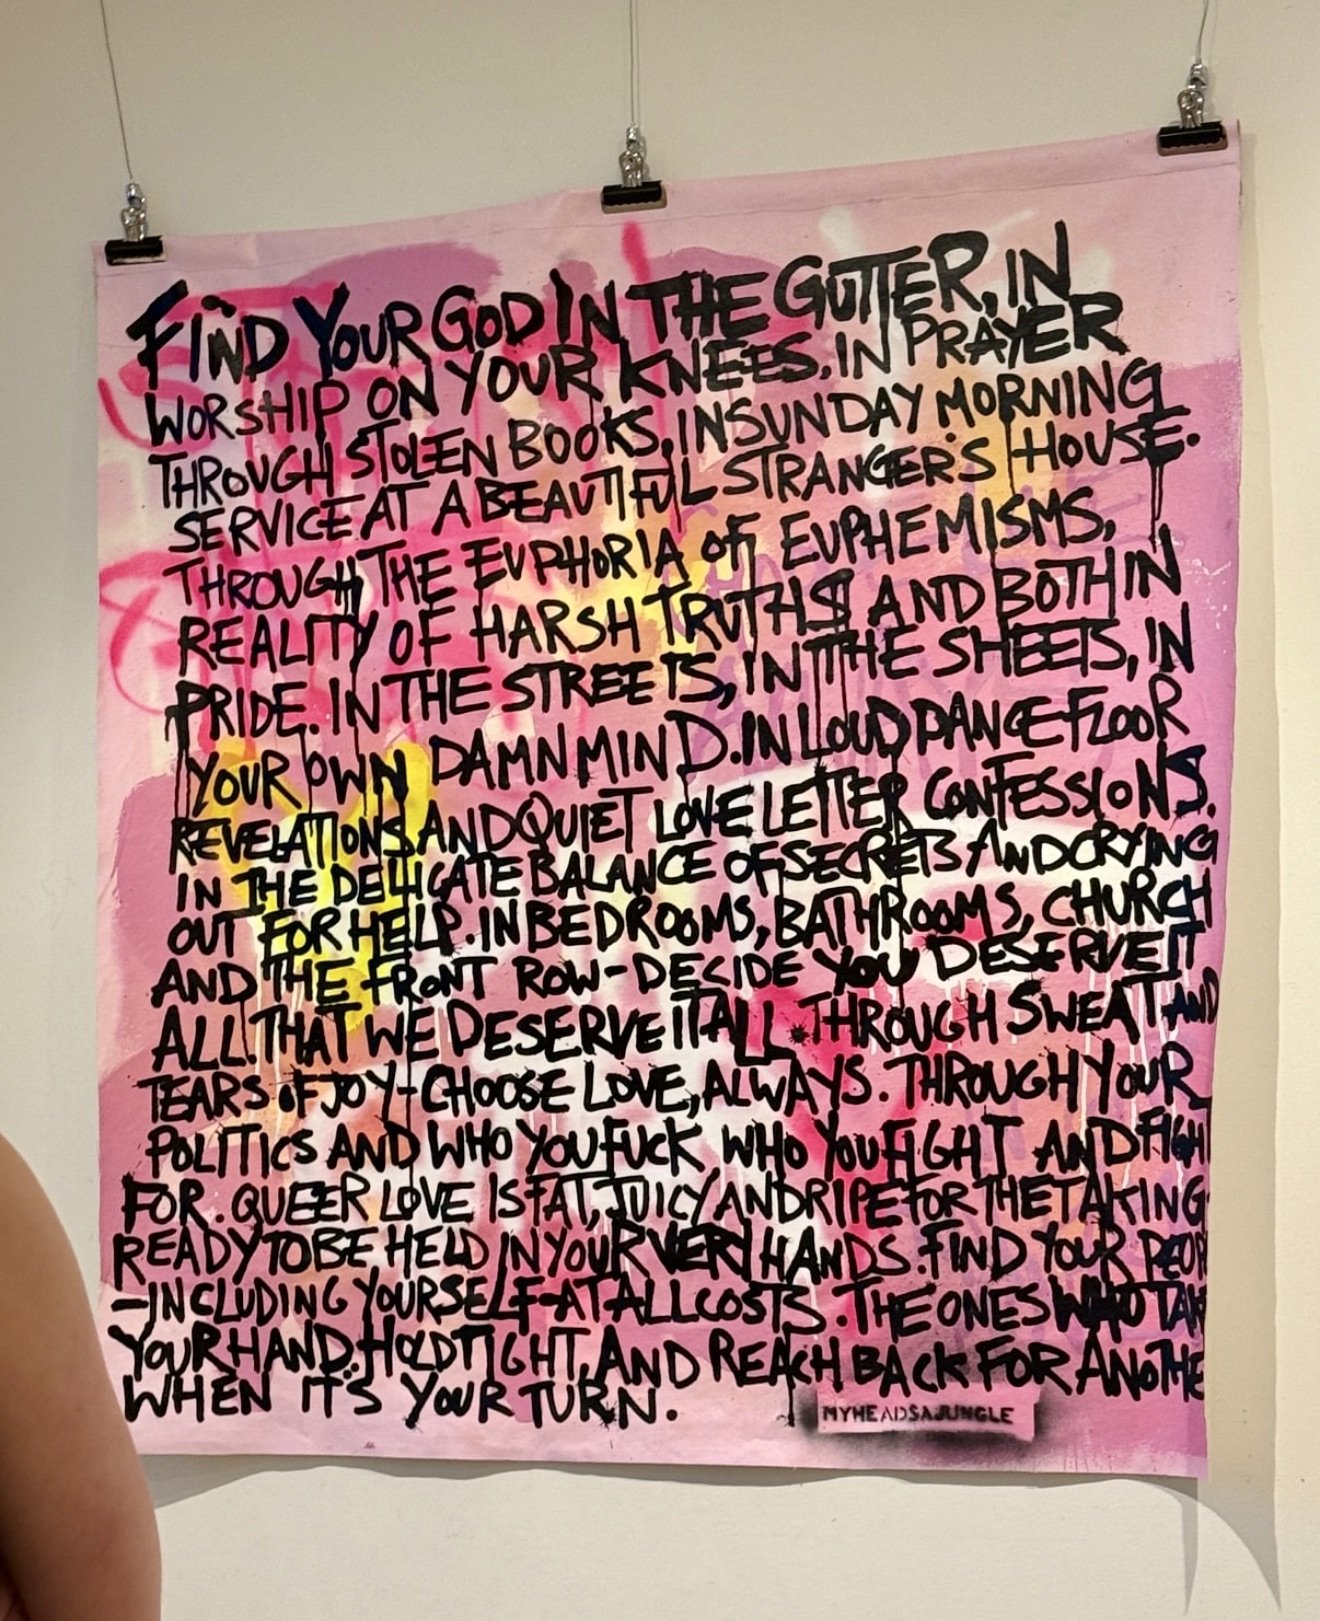 FIND YOUR GOD IN THE GUTTER, IN
WORSHIP ON YOUR KNEES. IN PRAYER
THROUGH STOLEN BOOKS, IN SUNDAY MORNING
SERVICE AT A BEAUTIFUL STRANGER'S HOUSE.
THROUGH THE EUPHORIA OF EUPHEMISMS,
REALITY OF HARSH TRUTHS AND BOTH IN
PRIDE. IN THE STREETS, IN THE SHEETS, IN
YOUR OWN DAMN MIND. IN LOUD DANCE FLOOR
REVELATIONS AND QUIET LOVE LETTER CONFESSIONS.
IN THE DELICATE BALANCE OF SECRETS AND CRYING
OUT FOR HELP. IN BEDROOMS, BATHROOMS, CHURCH
AND THE FRONT ROW-DECIDE YOU DESERVE IT
ALL. THAT WE DESERVE IT ALL. THROUGH SWEAT AND
TEARS OF JOY-CHOOSE LOVE, ALWAYS. THROUGH YOUR
POLITICS AND WHO YOU FUCK, WHO YOU FIGHT AND FIGHT
FOR. QUEER LOVE IS FAT, JUICY AND RIPE FOR THE TAKING.
READY TO BE HELD IN YOUR VERY HANDS. FIND YOUR PEOP
-INCLUDING YOURSELF-AT ALL COSTS. THE ONES WHO TAK
YOUR HAND. HOLD TIGHT, AND REACH BACK FOR ANOTHE
WHEN IT'S YOUR TURN.
MYHEADSAJUNGLE